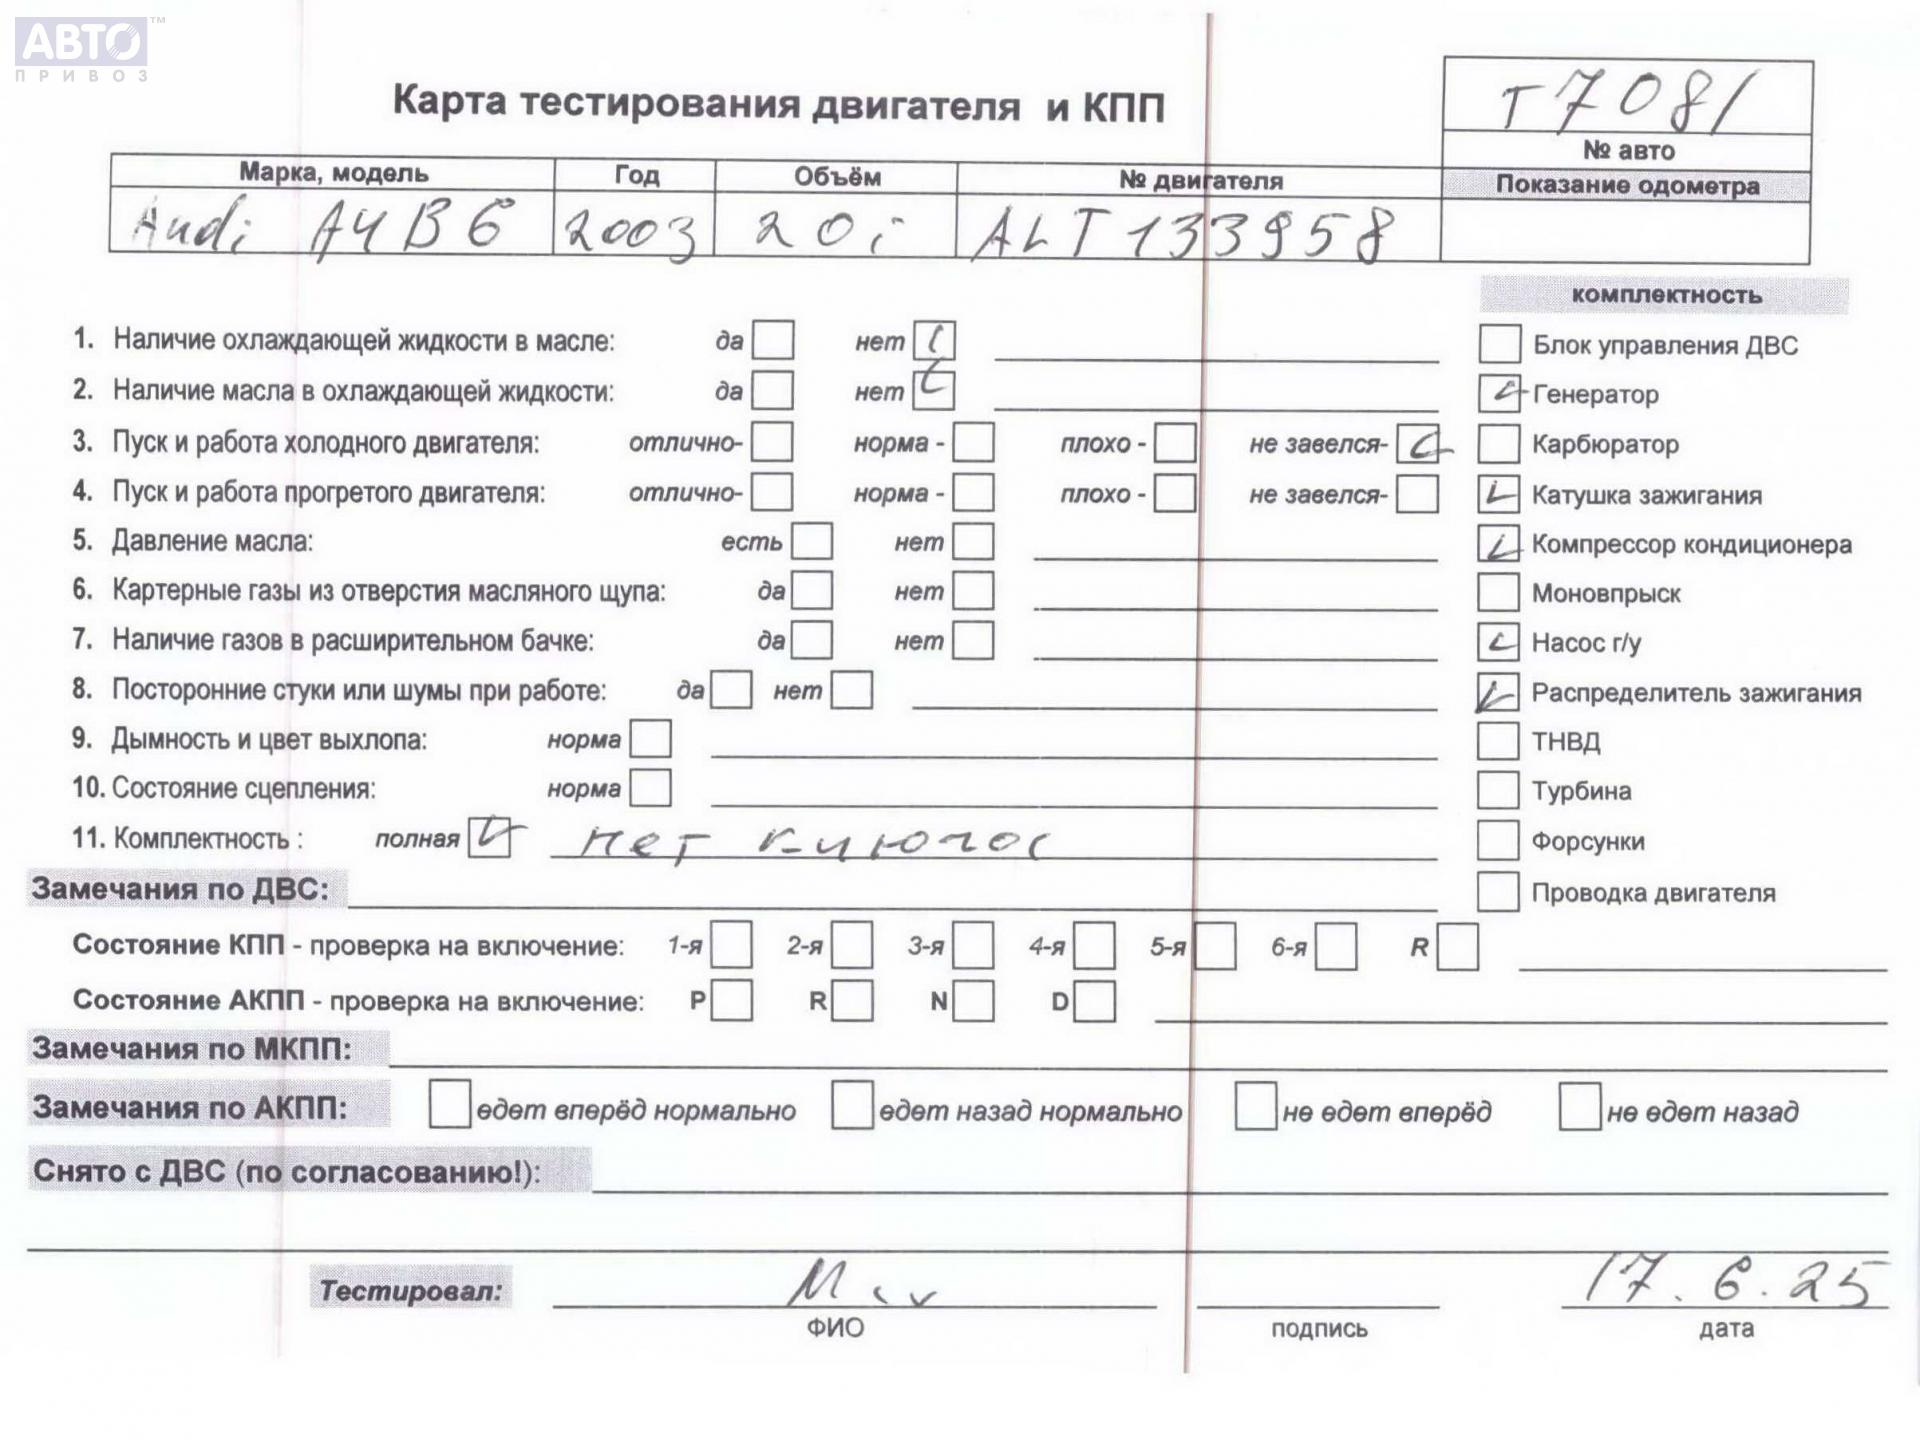 АВТО™
ПРИВОЗ
Карта тестирования двигателя и КПП
Т7081
№ авто
Марка, модель Год Объём № двигателя Показание одометра
Audi A4B6 2003 20i ALT133958
комплектность
1. Наличие охлаждающей жидкости в масле: да нет
Блок управления ДВС
2. Наличие масла в охлаждающей жидкости: да нет
Генератор
3. Пуск и работа холодного двигателя: отлично- норма - плохо - не завелся-
Карбюратор
4. Пуск и работа прогретого двигателя: отлично- норма - плохо - не завелся-
Катушка зажигания
5. Давление масла: есть нет
Компрессор кондиционера
6. Картерные газы из отверстия масляного щупа: да нет
Моновпрыск
7. Наличие газов в расширительном бачке: да нет
Насос г/у
8. Посторонние стуки или шумы при работе: да нет
Распределитель зажигания
9. Дымность и цвет выхлопа: норма
ТНВД
10. Состояние сцепления: норма
Турбина
11. Комплектность : полная нет
Форсунки
Замечания по ДВС:
Проводка двигателя
Состояние КПП - проверка на включение: 1-я 2-я 3-я 4-я 5-я 6-я R
Состояние АКПП - проверка на включение: P R N D
Замечания по МКПП:
Замечания по АКПП: едет вперёд нормально едет назад нормально не едет вперёд не едет назад
Снято с ДВС (по согласованию!):
Тестировал: 17.6.25
ФИО подпись дата